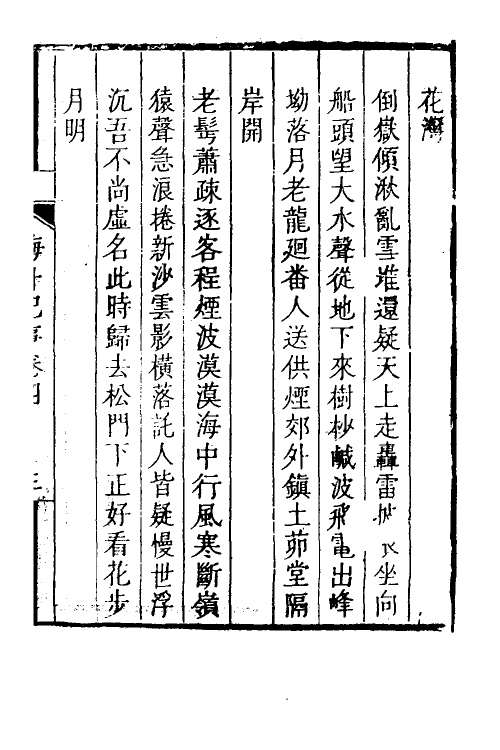 花灣
倒嶽傾湫亂雪堆還疑天上走轟雷坐向
船頭望大水聲從地下來樹杪鹹波飛黿出峰
坳落月老龍廻番人送供煙郊外鎮土茆堂隔
岸開
老髩蕭疎逐客程煙波漠漠海中行風寒斷嶺
猿聲急浪捲新沙雲影橫落託人皆疑慢世浮
沉吾不尚虛名此時歸去松門下正好看花步
月明
海外紀事卷四